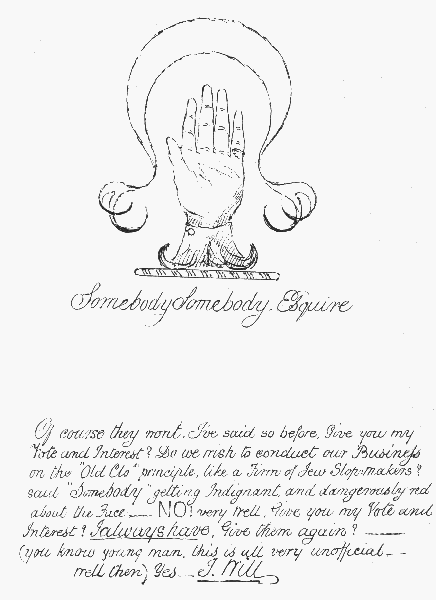 Somebody Somebody. Esquire
Of course they wont. I've said so before, Give you my
Vote and Interest? Do we wish to conduct our Business
on the "Old Clo" principle, like a Firm of Jew Slop-makers?
said "Somebody" getting Indignant, and dangerously red
about the Face — NO! very well, Give you my Vote and
Interest? I always have, Give them again? —
(you know young man, this is all very unofficial —
well then) Yes — I Will